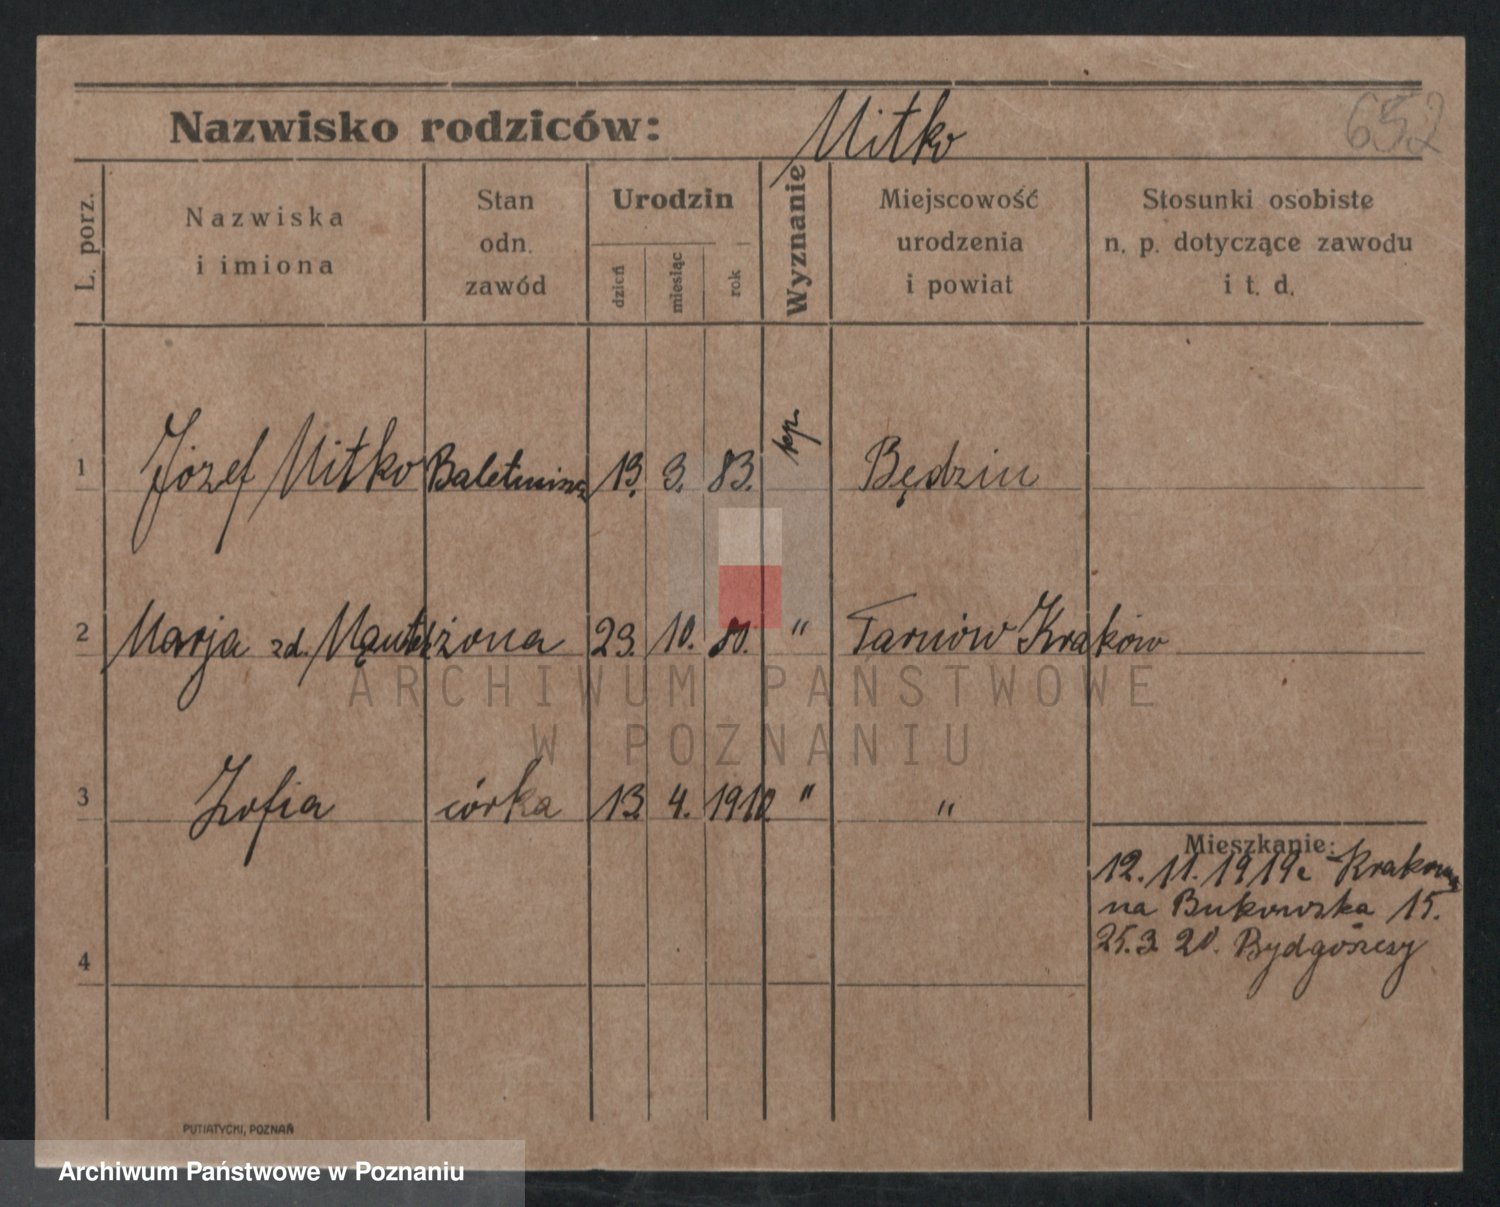 Nazwisko rodziców: Mitko
652
L. porz.
Nazwiska
i imiona
Stan
odn.
zawód
Urodzin
dzień
miesiąc
rok
Wyznanie
Miejscowość
urodzenia
i powiat
Stosunki osobiste
n. p. dotyczące zawodu
i t. d.
1 Józef Mitko Baletmistrz 13. 3. 83. Będzin
2 Marja zd. żona 23. 10. 80. " Tarnów Kraków
3 Zofia córka 13. 4. 1910. " "
Mieszkanie:
12. 11. 1919
na Bukowska 15.
25. 3. 20. Bydgoszcz
4
PUTIATYCKI, POZNAŃ
ARCHIWUM PAŃSTWOWE
W POZNANIU
Archiwum Państwowe w Poznaniu